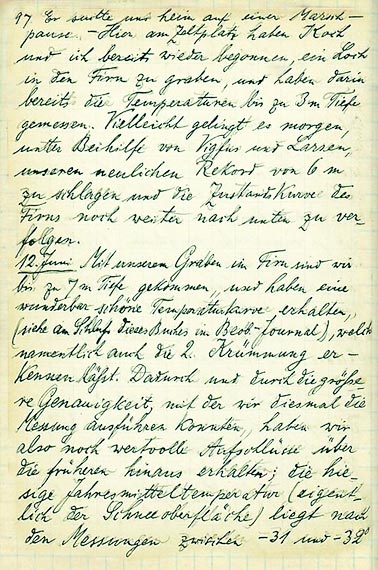 97. Er suchte uns heim auf einer Marsch-
pause. – Hier am Zeltplatz haben Koch
und ich bereits wieder begonnen, ein Loch
in den Firn zu graben, und haben darin
bereits die Temperaturen bis zu 3 m Tiefe
gemessen. Vielleicht gelingt es morgen,
unter Beihilfe von Vigfus und Larsen,
unseren neulichen Rekord von 6 m
zu schlagen und die Zustandskurve des
Firns noch weiter nach unten zu ver-
folgen.
12. Juni Mit unserem Graben im Firn sind wir
bis zu 7 m Tiefe gekommen, und haben eine
wunderbar schöne Temperaturkurve erhalten,
(siehe am Schluß dieses Buches im Beob.-Journal), welche
namentlich auch die 2. Krümmung er-
kennen läßt. Dadurch und durch die größe-
re Genauigkeit, mit der wir diesmal die
Messung ausführen konnten, haben wir
also noch wertvolle Aufschlüsse über
die früheren hinaus erhalten; die hie-
sige Jahresmitteltemperatur (eigent-
lich der Schneeoberfläche) liegt nach
den Messungen zwischen -31 und -32°